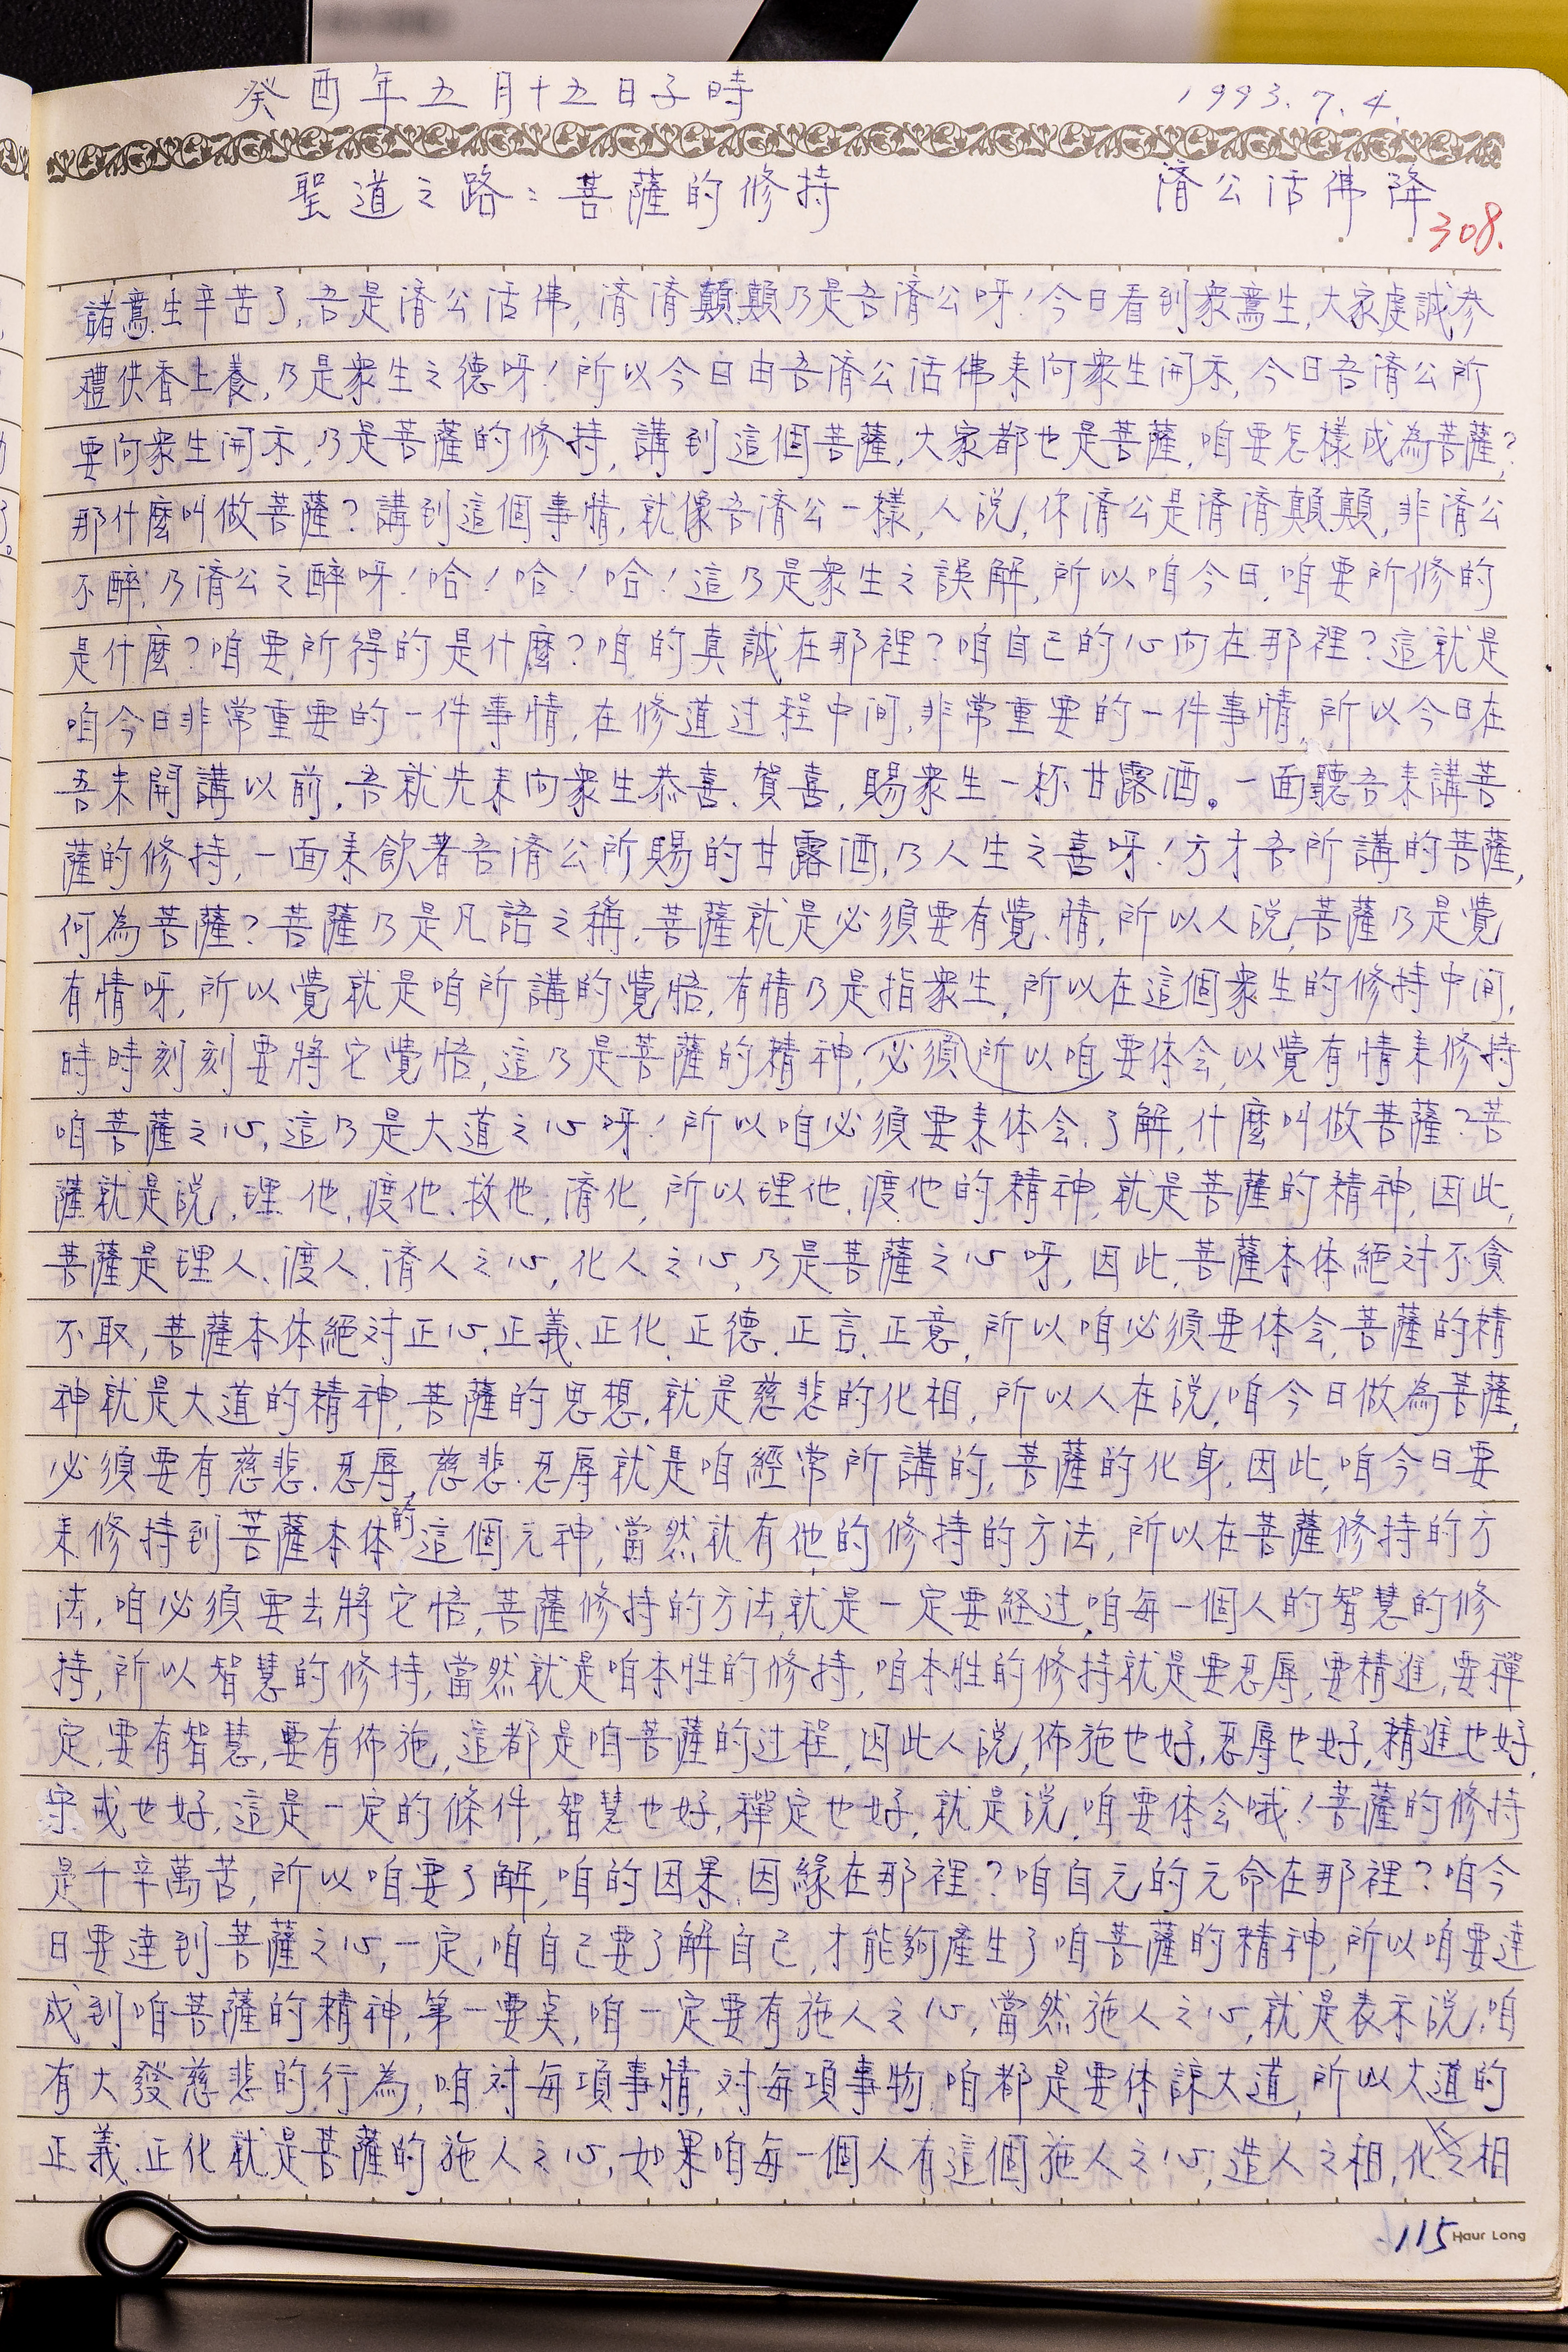 癸酉年五月十五日子時 1993.7.4.
聖道之路：菩薩的修持 濟公活佛降
308.
諸鸞生辛苦了，吾是濟公活佛，濟濟顛顛乃是吾濟公呀！今日看到衆鸞生，大家虔誠参
禮供香上養，乃是衆生之德呀！所以今日由吾濟公活佛来向衆生開示，今日吾濟公所
要向衆生開示，乃是菩薩的修持，講到這個菩薩，大家都也是菩薩，咱要怎樣成為菩薩？
那什麼叫做菩薩？講到這個事情，就像吾濟公一樣，人説，你濟公是濟濟顛顛，非濟公
不醉，乃濟公之醉呀！哈！哈！哈！這乃是衆生之誤解，所以咱今日，咱要所修的
是什麼？咱要所得的是什麼？咱的真誠在那裡？咱自己的心向在那裡？這就是
咱今日非常重要的一件事情，在修道过程中间，非常重要的一件事情，所以今日在
吾未開講以前，吾就先来向衆生恭喜、賀喜，賜衆生一杯甘露酒。一面聽吾来講菩
薩的修持，一面来飲著吾濟公所賜的甘露酒，乃人生之喜呀！方才吾所講的菩薩，
何為菩薩？菩薩乃是凡語之稱，菩薩就是必須要有覺、情，所以人説，菩薩乃是覺
有情呀，所以覺就是咱所講的覺悟，有情乃是指衆生，所以在這個衆生的修持中间，
時時刻刻要將它覺悟，這乃是菩薩的精神，必須所以咱要体会，以覺有情来修持
咱菩薩之心，這乃是大道之心呀！所以咱必須要来体会、了解，什麼叫做菩薩？菩
薩就是説，理他、渡他、救他、濟化，所以理他、渡他的精神，就是菩薩的精神，因此，
菩薩是理人、渡人、濟人之心，化人之心，乃是菩薩之心呀，因此，菩薩本体絕对不貪
不取，菩薩本体絕对正心、正義、正化、正德、正言、正意，所以咱必須要体会，菩薩的精
神就是大道的精神，菩薩的思想，就是慈悲的化相，所以人在説，咱今日做為菩薩，
必須要有慈悲、忍辱，慈悲、忍辱就是咱經常所講的，菩薩的化身，因此，咱今日要
来修持到菩薩本体的這個元神，當然就有他的修持的方法，所以在菩薩修持的方
法，咱必須要去將它悟，菩薩修持的方法，就是一定要経过，咱每一個人的智慧的修
持，所以智慧的修持，當然就是咱本性的修持，咱本性的修持就是要忍辱，要精進，要禪
定，要有智慧，要有佈施，這都是咱菩薩的过程，因此人説，佈施也好，忍辱也好，精進也好，
守戒也好，這是一定的條件，智慧也好，禪定也好，就是説，咱要体会哦！菩薩的修持
是千辛萬苦，所以咱要了解，咱的因果、因緣在那裡？咱自元的元命在那裡？咱今
日要達到菩薩之心，一定，咱自己要了解自己，才能夠產生了咱菩薩的精神，所以咱要達
成到咱菩薩的精神，第一要奌，咱一定要有施人之心，當然施人之心，就是表示説，咱
有大發慈悲的行為，咱对每項事情，对每項事物，咱都是要体諒大道，所以大道的
正義、正化就是菩薩的施人之心，如果咱每一個人有這個施人之心，造人之相，化人之相
115 Haur Long